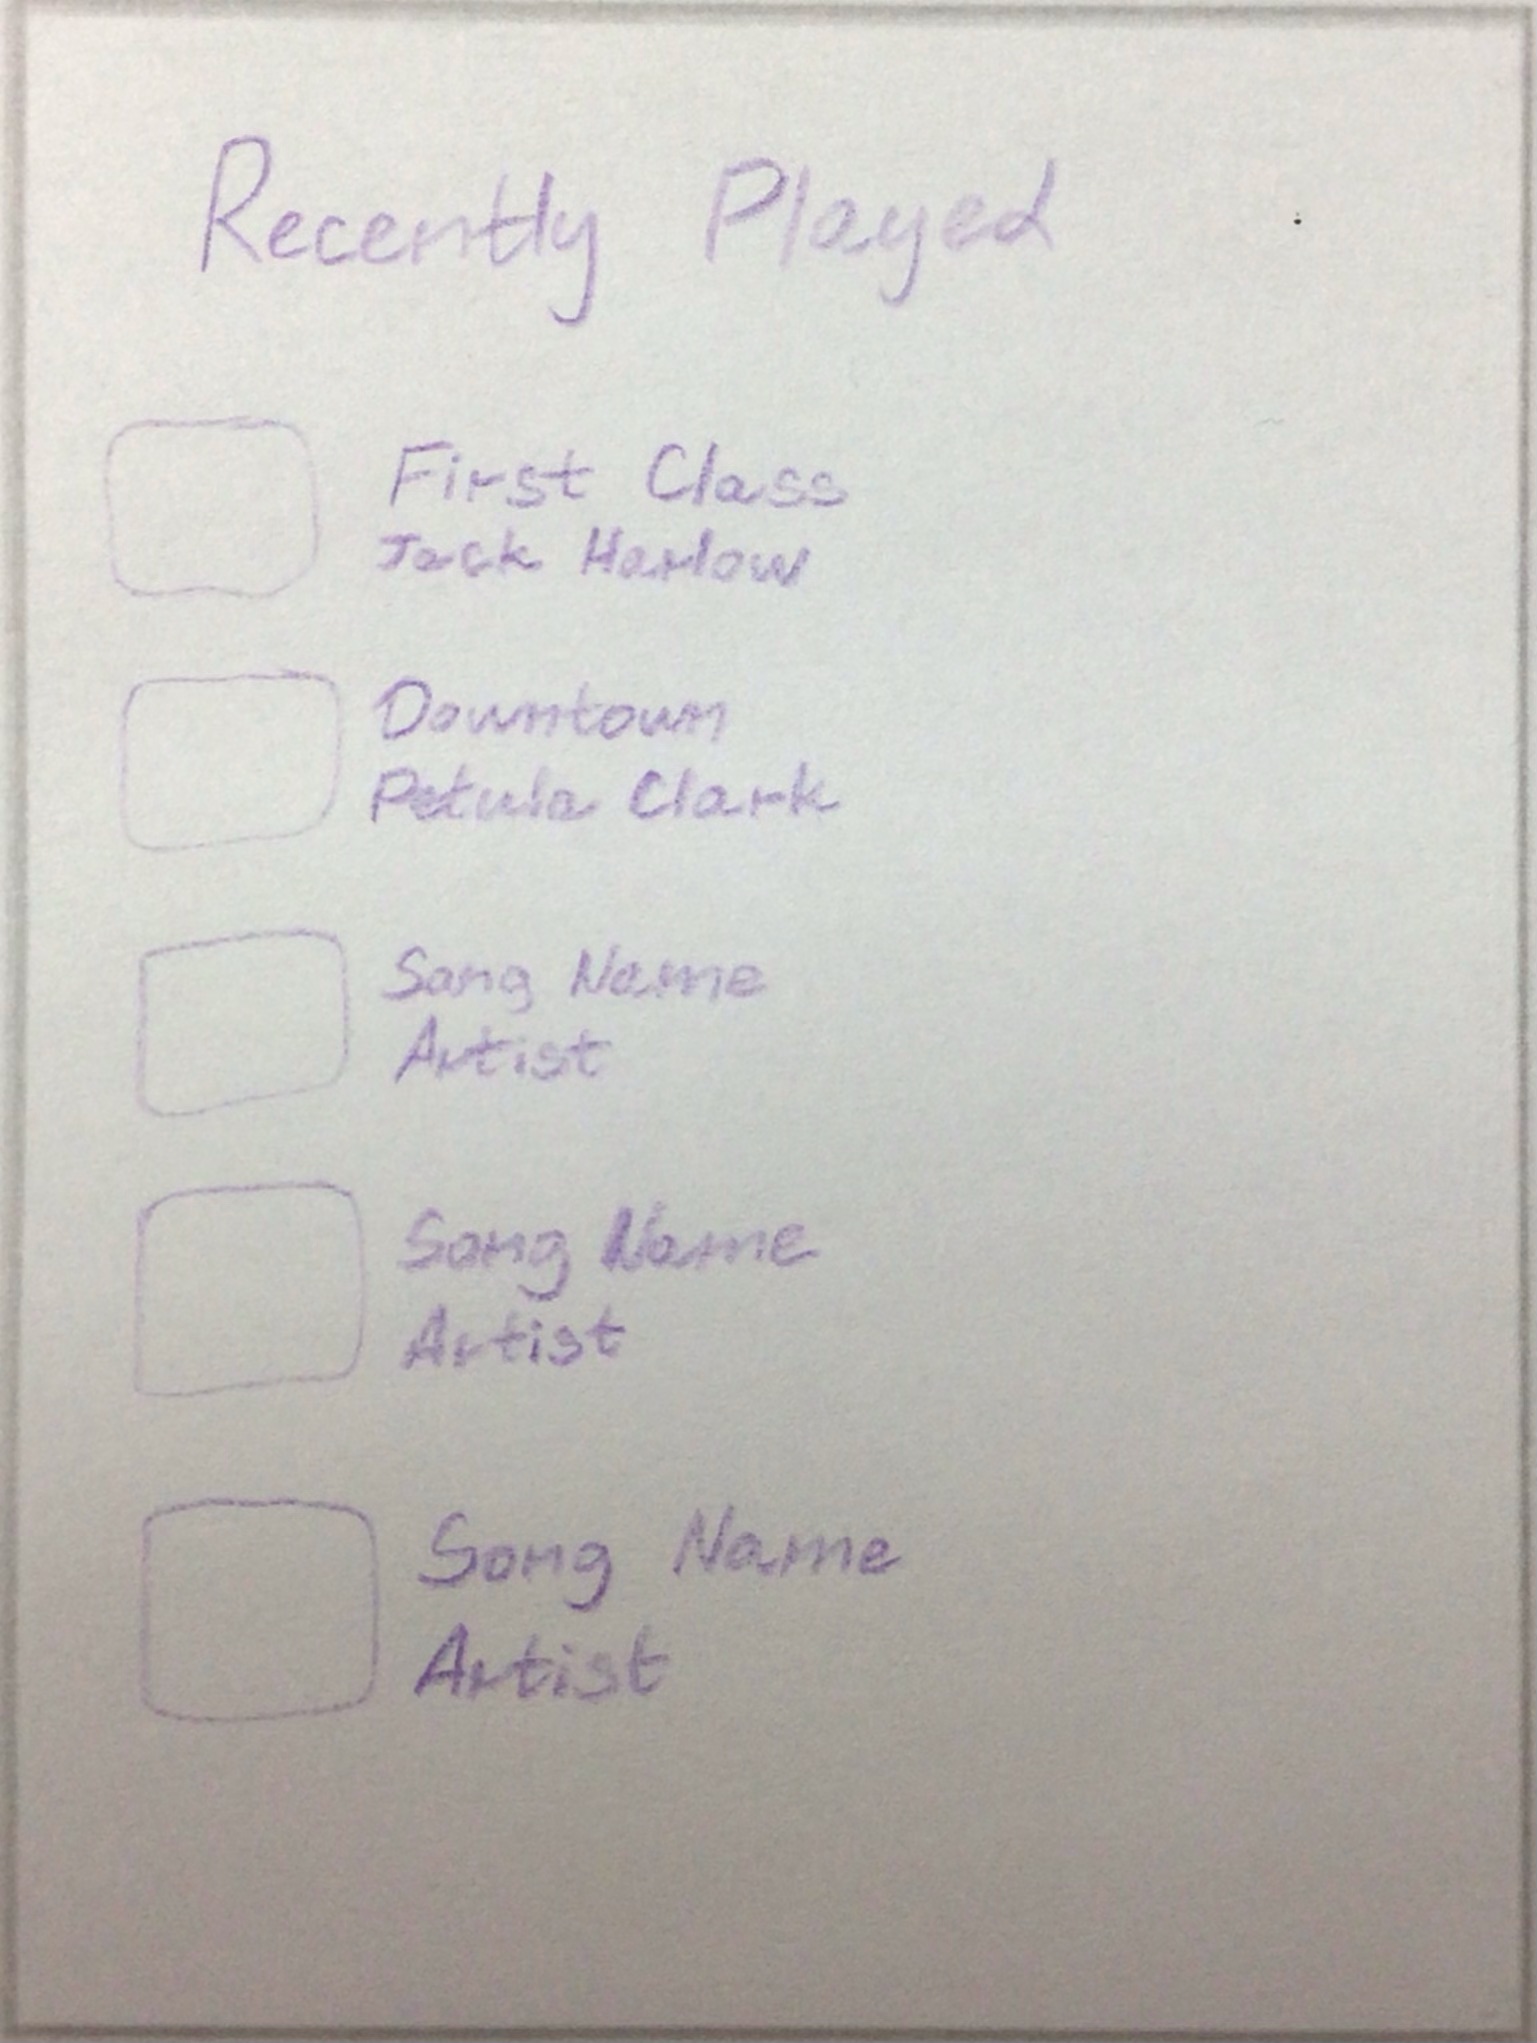 Recently Played
First Class
Jack Harlow
Downtown
Petula Clark
Song Name
Artist
Song Name
Artist
Song Name
Artist